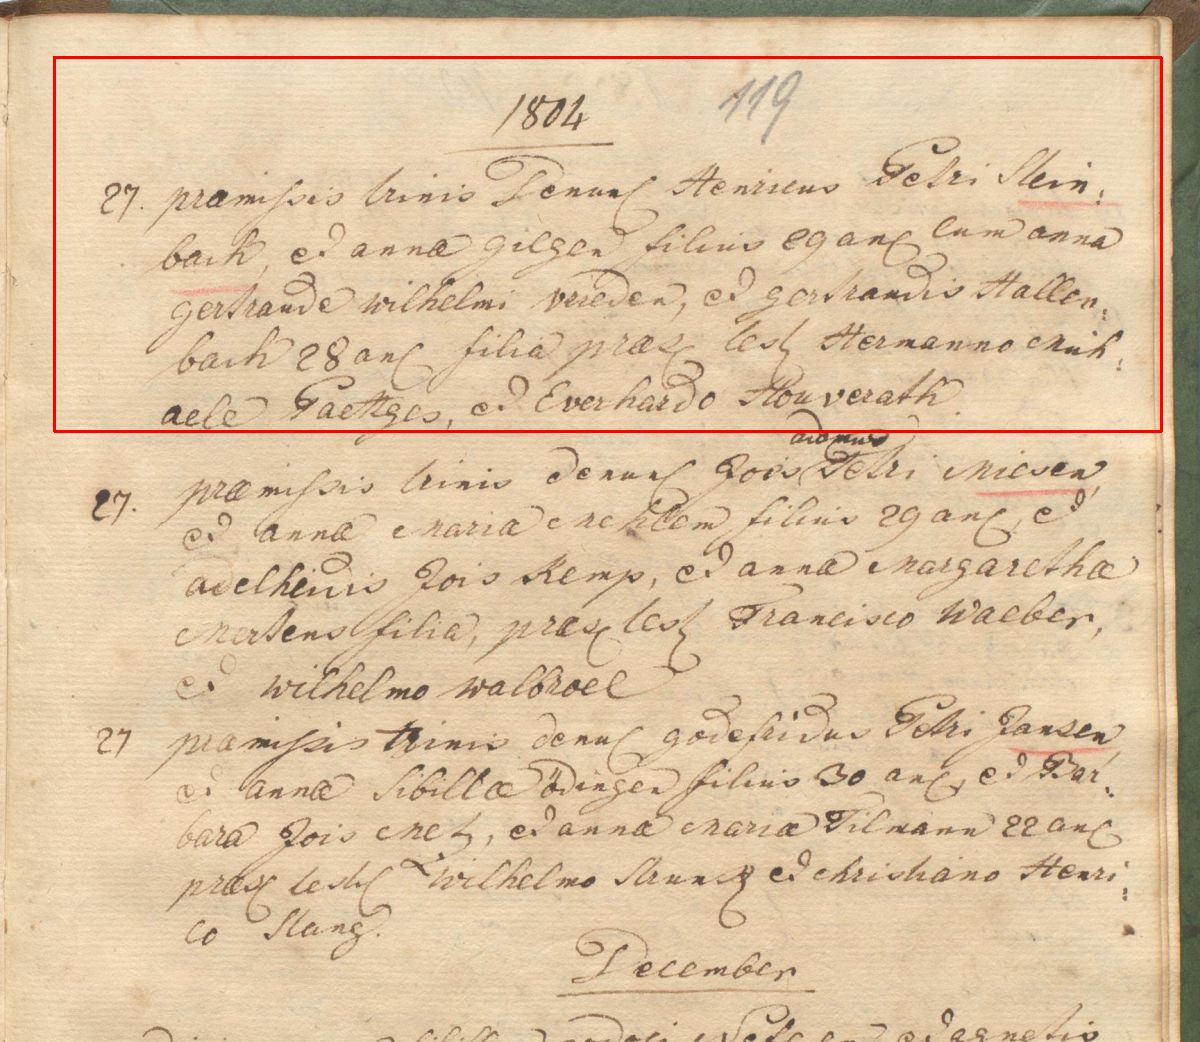 1804
119
27. præmissis trinis Denunc Henricus Petri Stein:
bach, et annæ gilgen filius 29 anc cum anna
gertraude wilhelmi vrieden, et gertraudis Hallen:
bach 28 anc filia præs test Hermanno Mich:
aele Paettges, et Everhardo Houverath
adamus
27. præmissis trinis denunc Jois Petri Miesen,
et annæ Maria Mehlem filius 29 anc, et
adelheidis Jois Kemp, et annæ Margarethæ
Mertens filia, præs test Francisco Waeber,
et wilhelmo walbroel
27 præmissis trinis denunc godefridus Petri Jansen
et annæ Sibillæ ödingen filius 30 anc, et Bar:
bara Jois Met, et annæ Mariæ Tilmann 22 anc
præs test wilhelmo Strunck et christiano Henri:
co Stang.
December
et agnetis